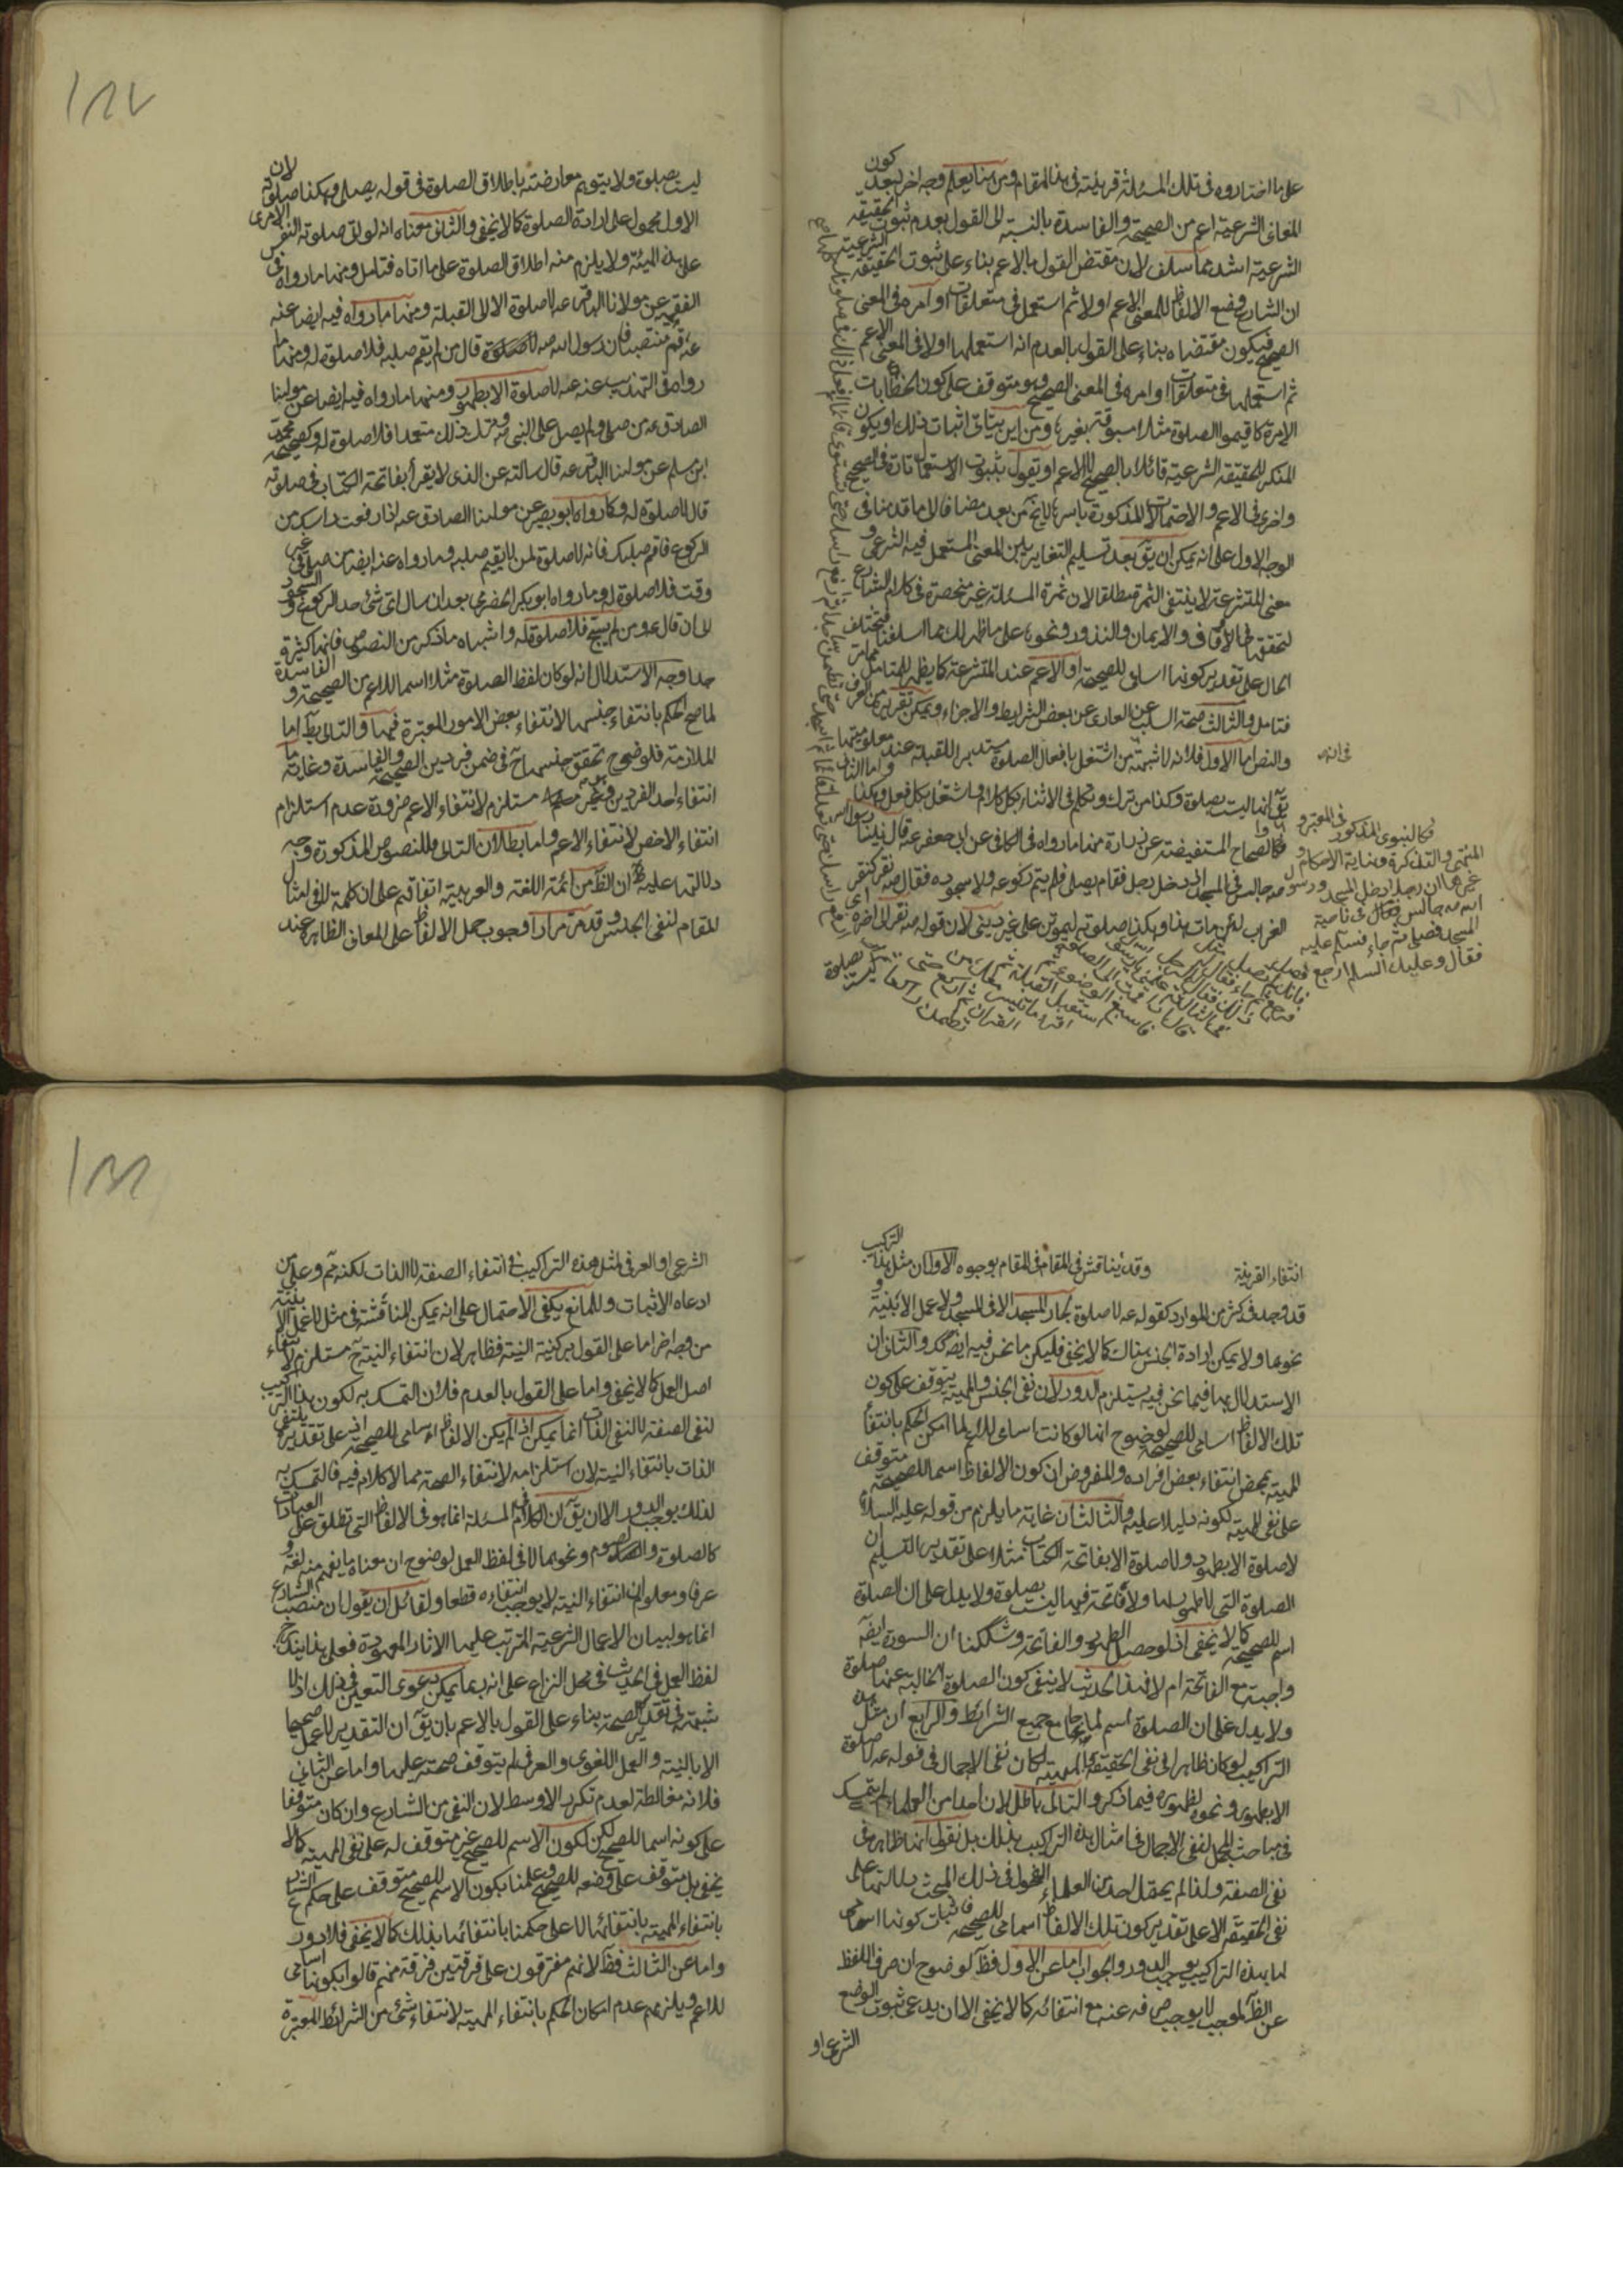 على ما اختاروه فى تلك المسئلة قرينة فى هذا المقام ومن هنا يعلم وجه اخر لبعد كون
المعانى الشرعية اعم من الصحيحة والفاسدة بالنسبة الى القول بعدم ثبوت الحقيقة
الشرعية اشد مما سلف لان مقتضى القول بالاعم بناء على ثبوت الحقيقة الشرعية
ان الشارع وضع الالفاظ للمعنى الاعم اولا ثم استعمل فى متعلقات اوامره فى المعنى
الصحيح فيكون مقتضاه بناء على القول بالعدم انه استعملها اولا فى المعنى الاعم
ثم استعملها فى متعلقات اوامره فى المعنى الصحيح وهو متوقف على كون الخطابات
الامرة كاقيموا الصلوة مثلا مسبوقة بغيرها ومن اين يتاتى اثبات ذلك او يكون
المنكر للحقيقة الشرعية قائلا بالصحيح لا الاعم او تقول بثبوت الاستعمالات تارة فى الصحيح
واخرى فى الاعم والاحتمالات المذكورة باسرها لا يخ من بعد مضافا الى ما قدمنا فى
الوجه الاول على انه يمكن ان يق بعد تسليم التغاير بين المعنى المستعمل فيه الشرعى و
معنى المتشرعة لا ينتفى الثمرة مطلقا لان ثمرة المسئلة غير منحصرة فى كلام الشارع
لتحققها فى الاوقاف والايمان والنذور ونحوها على ما ظهر لك مما اسلفنا فيختلف
الحال على تقدير كونها اسامى للصحيحة او الاعم عند المتشرعة كما يظهر للمتامل مما مر
فتامل والثالث صحة السلب عن العارى عن بعض الشرايط والاجزاء ويمكن تقريره من العرف
والنص اما الاول فلانه لا شبهة من اشتغل بافعال الصلوة مستدبر القبلة عند معلوميتها
فى انه
يق انها ليست بصلوة وكذا من ترك وتكلم فى الاثناء بكل كلام واشتغل بكل فعل وهكذا واما الثانى
فكالصحاح المستفيضة عن زرارة منها ما رواه فى الكافى عن ابى جعفر عه قال بينا رسول الله
صه جالس فى المسجد اذ دخل رجل فقام يصلى فلم يتم ركوعه ولا سجوده فقال صه نقر كنقر
الغراب لئن مات هذا وهكذا صلوته ليموتن على غير دينى لان قوله صه نقر الى اخره اى
فكالنبوى المذكور فى المعتبر و
المنتهى والتذكرة ونهاية الاحكام و
غيرها ان رجلا دخل المسجد ورسول
الله صه جالس فى ناحية
المسجد فصلى ثم جاء فسلم عليه
فقال وعليك السلام ارجع فصل
ليست بصلوة ولا يتوهم معارضته باطلاق الصلوة فى قوله يصلى وهكذا صلوته لان
الاول محمول على ارادة الصلوة كما لا يخفى والثانى معناه انه لو بقى صلوته النفس الامرى
على هذه الهيئة ولا يلزم منه اطلاق الصلوة على ما اتاه فتامل ومنها ما رواه فى
الفقيه عن مولانا الباقر عه لا صلوة الا الى القبلة ومنها ما رواه فيه ايضا عنه
عه قم منتصبا فان رسول الله صه قال من لم يقم صلبه فلا صلوة له ومنها ما
رواه فى التهذيب عنه عه لا صلوة الا بطهور ومنها ما رواه فيه ايضا عن مولينا
الصادق عه من صلى ولم يصل على النبى صه وترك ذلك متعمدا فلا صلوة له وكصحيحة محمد
ابن مسلم عن مولينا الباقر عه قال سالته عن الذى لا يقرأ بفاتحة الكتاب فى صلوته
قال لا صلوة له وكما رواه ابو بصير عن مولينا الصادق عه اذا رفعت راسك من
الركوع فاقم صلبك فانه لا صلوة لمن لا يقيم صلبه وما رواه عنه ايضا من صلى فى غير
وقت فلا صلوة له وما رواه ابو بكر الحضرمى بعد ان سال اى شئ حد الركوع والسجود
الى ان قال عه ومن لم يسبح فلا صلوة له واشباه ما ذكر من النصوص فانها كثيرة
جدا وجه الاستدلال انه لو كان لفظ الصلوة مثلا اسما للاعم من الصحيحة و الفاسدة
لما صح الحكم بانتفاء جنسها لانتفاء بعض الامور المعتبرة فيها والتالى بط اما
الملازمة فلوضوح تحقق جنسها ح فى ضمن فردين الصحيحة والفاسدة وغاية ما
انتفاء احد الفردين وهو غير مستلزم لانتفاء الاعم ضرورة عدم استلزام
انتفاء الاخص لانتفاء الاعم واما بطلان التالى فللنصوص المذكورة وجه
دلالتها عليه ظ ان الظ من ائمة اللغة والعربية اتفاقهم على ان كلمة لا فى امثال
المقام لنفى الجنس وقد مر مرارا وجوب حمل الالفاظ على المعانى الظاهرة عند
انتفاء القرينة وقد يناقش فى المقام بوجوه الاول ان مثل هذا التركيب
قد وجد فى كثير من الموارد كقوله عه لا صلوة لجار المسجد الا فى المسجد ولا عمل الا بنية و
نحوها ولا يمكن ارادة الجنس هناك كما لا يخفى فليكن ما نحن فيه ايضا كذا والثانى ان
الاستدلال بها فيما نحن فيه يستلزم الدور لان نفى الجنس والمهية يتوقف على كون
تلك الالفاظ اسامى للصحيحة لوضوح انها لو كانت اسامى للاعم لما امكن الحكم بانتفاء
المهية بمحض انتفاء بعض افراده والمفروض ان كون الالفاظ اسما للصحيحة متوقف
على نفى المهية لكونه دليلا عليه والثالث ان غاية ما يلزم من قوله عليه السلام
لا صلوة الا بطهور ولا صلوة الا بفاتحة الكتاب مثلا على تقدير التسليم ان
الصلوة التى لا طهور لها ولا فاتحة فيها ليست بصلوة ولا يدل على ان الصلوة
اسم للصحيحة كما لا يخفى اذ لو حصل الطهور والفاتحة وشككنا ان السورة ايضا
واجبة مع الفاتحة ام لا فهذا الحديث لا ينفى كون الصلوة الخالية عنها صلوة
ولا يدل على ان الصلوة اسم لما جامع جميع الشرائط والرابع ان مثل هذه
التراكيب لو كان ظاهرا فى نفى الحقيقة والمهية لكان نفى الاجمال فى قوله عه لا صلوة
الا بطهور ونحوه لظهوره فيما ذكر والتالى باطل لان احدا من العلماء لم يتمسك
فى مباحث المجمل لنفى الاجمال فى امثال هذه التراكيب بذلك بل نقول انها ظاهرة فى
نفى الصفة ولذا لم يحتمل احد من العلماء الفحول فى ذلك المبحث دلالتها على
نفى الحقيقة الا على تقدير كون تلك الالفاظ اسامى للصحيحة فاثبات كونها اسامى
لها بهذه التراكيب يوجب الدور والجواب اما عن الاول فظ لوضوح ان صرف اللفظ
عن الظ لموجب لا يوجب صرفه عنه مع انتفائه كما لا يخفى الا ان يدعى ثبوت الوضع
الشرعى او
الشرعى او العرفى لمثل هذه التراكيب فى انتفاء الصفة لا الذات لكنه ثم وعلى من
ادعاه الاثبات وللمانع يكفى الاحتمال على انه يمكن المناقشة فى مثل لا عمل الا بنية
من وجه اخر اما على القول بركنية النية فظاهر لان انتفاء النية ح مستلزم لانتفاء
اصل العمل كما لا يخفى واما على القول بالعدم فلان التمسك به لكون هذا التركيب
لنفى الصفة لا لنفى الذات انما يمكن اذا لم يكن الالفاظ اسامى للصحيحة اذ على تقديره ينتفى
الذات بانتفاء النية لان استلزامه لانتفاء الصحة مما لا كلام فيه فالتمسك به
لذلك يوجب الدور الا ان يق ان الكلام فى المسئلة انما هو فى الالفاظ التى تطلق على العبادات
كالصلوة والصوم ونحوهما لا فى لفظ العمل لوضوح ان معناه ما يفهم منه لغة و
عرفا ومعلوم ان انتفاء النية لا يوجب انتفاءه قطعا ولقائل ان يقول ان منصب الشارع
انما هو لبيان الاعمال الشرعية المترتب عليها الاثار المعهودة فعلى هذا يندرج
لفظ العمل فى الحديث فى محل النزاع على انه ربما يمكن دعوى التعين فى ذلك اذ لا
شبهة فى تقدير الصحة بناء على القول بالاعم بان يق ان التقدير لا عمل صحيحا
الا بالنية والعمل اللغوى والعرفى لم يتوقف صحته عليها واما عن الثانى
فلانه مغالطة لعدم تكرر الاوسط لان النفى من الشارع وان كان متوقفا
على كونه اسما للصحيح لكن لكون الاسم للصحيح غير متوقف له على نفى المهية كما لا
يخفى بل متوقف على وضعه للصحيح وعلمنا بكون الاسم للصحيح متوقف على حكم الشارع
بانتفاء المهية بانتفائها لا على حكمنا بانتفائها بذلك كما لا يخفى فلا دور
واما عن الثالث فظ لانهم مفترقون على فرقتين فرقة منهم قالوا بكونها اسامى
للاعم ويلزمهم عدم امكان الحكم بانتفاء المهية لانتفاء شئ من الشرائط المعتبرة